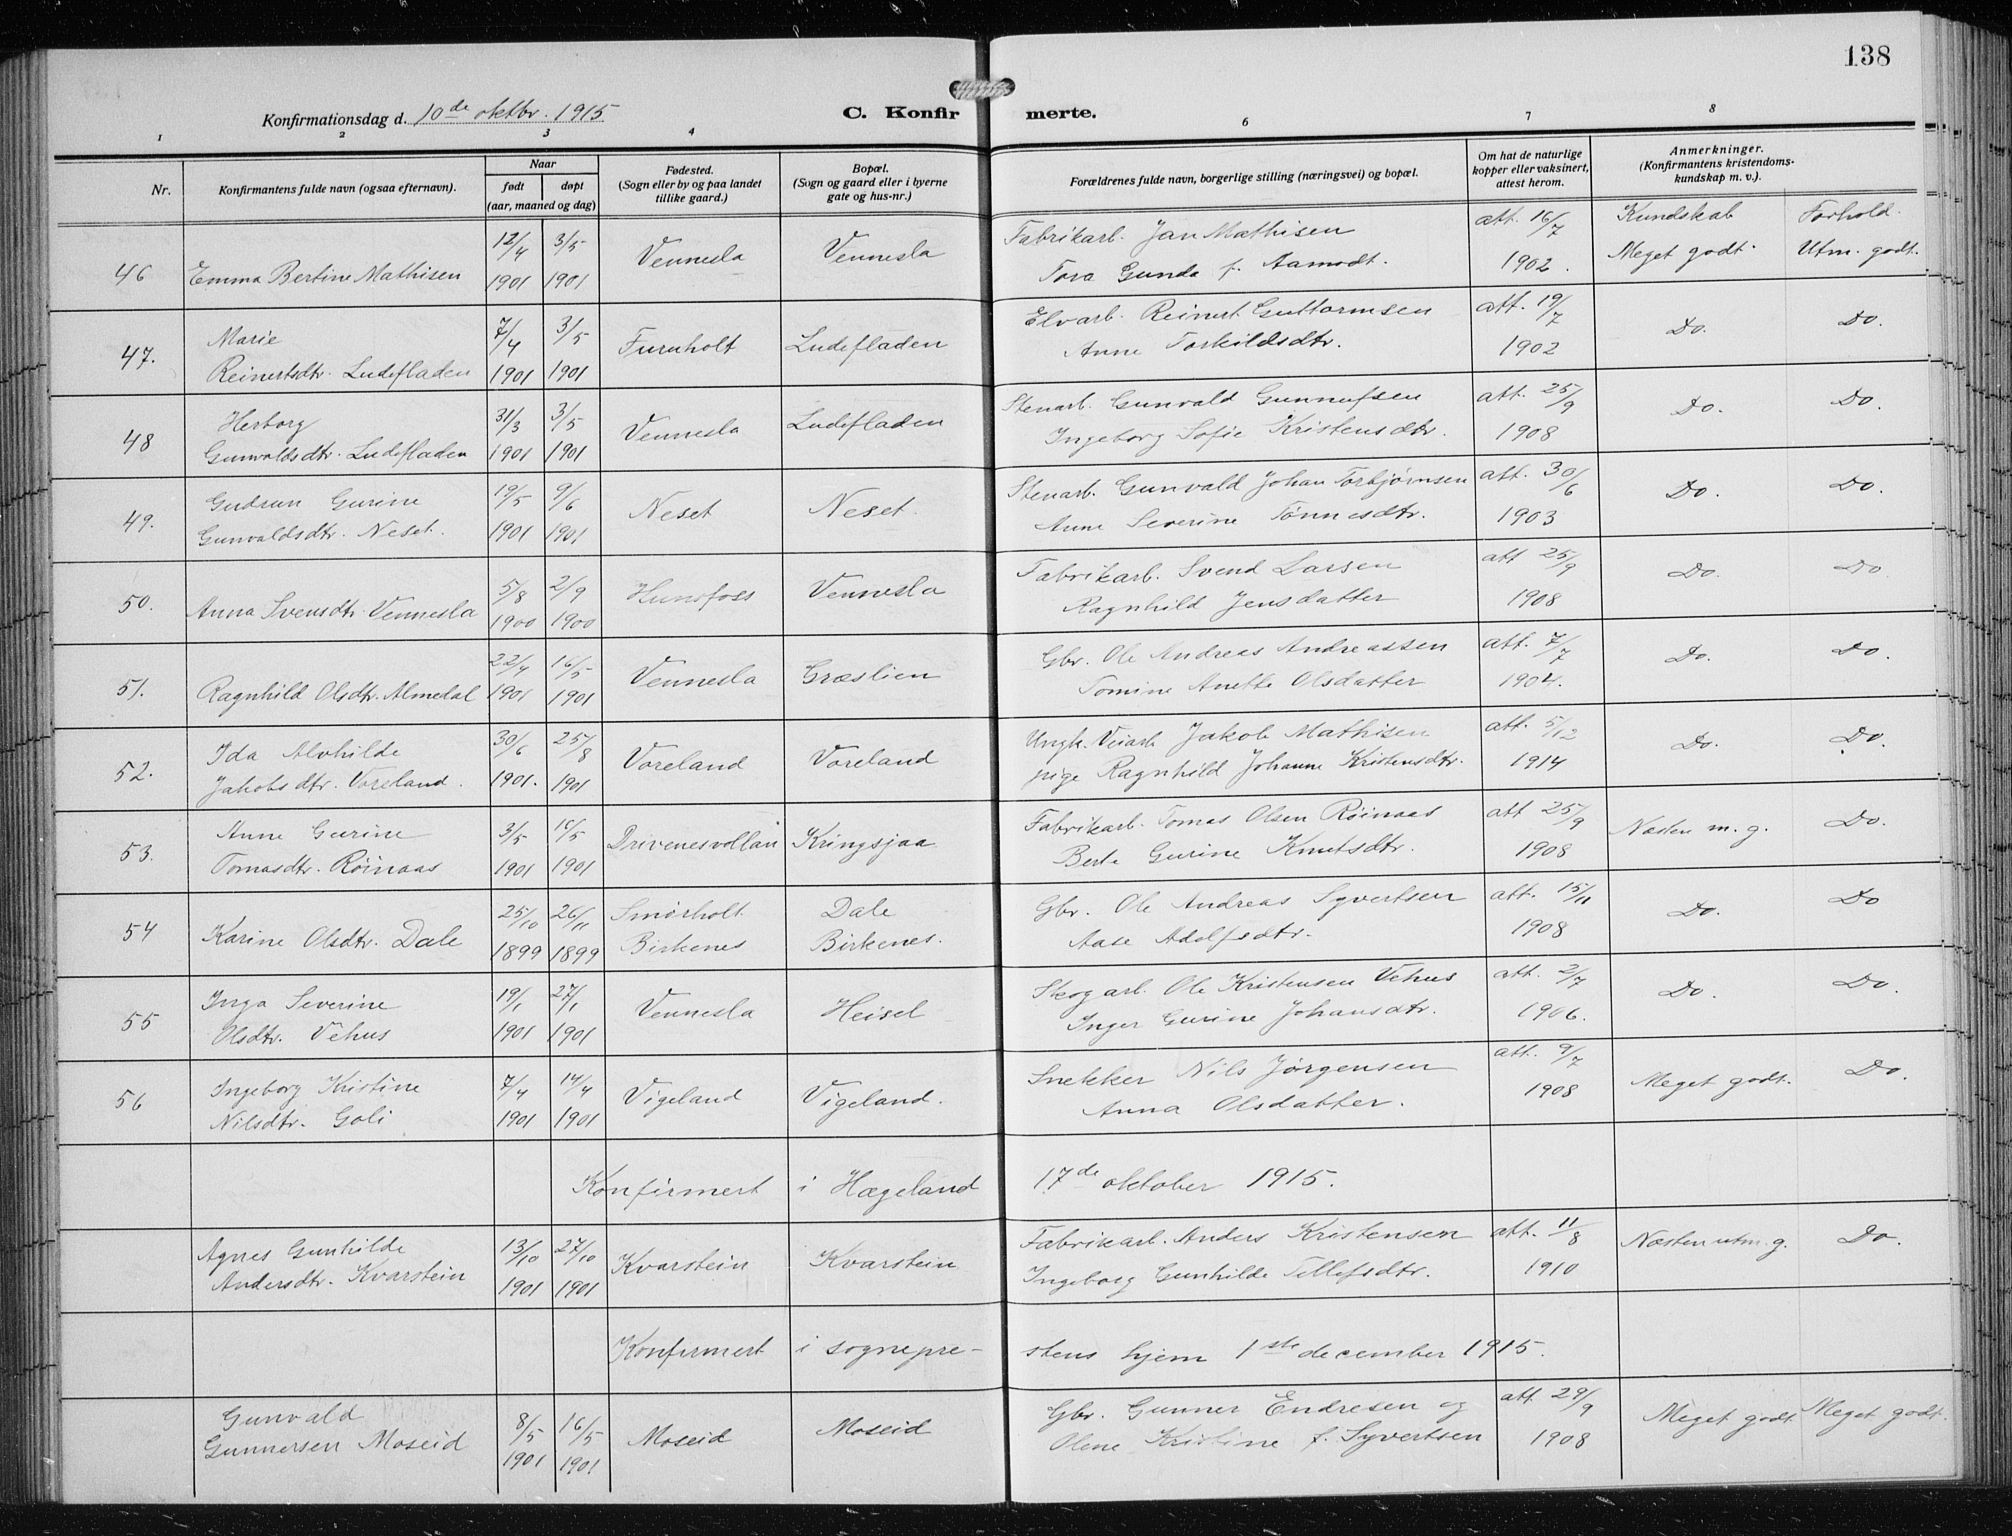 138
Konfirmationsdag d. 10de oktbr. 1915
C. Konfirmerte.
1 2 3 4 6 7 8
Nr.
Konfirmantens fulde navn (ogsaa efternavn).
Naar
født døpt
(aar, maaned og dag)
Fødested.
(Sogn eller by og paa landet
tillike gaard.)
Bopæl.
(Sogn og gaard eller i byerne
gate og hus-nr.)
Forældrenes fulde navn, borgerlige stilling (næringsvei) og bopæl.
Om hat de naturlige
kopper eller vaksinert,
attest herom.
Anmerkninger.
(Konfirmantens kristendoms-
kundskap m. v.).
Kundskab Forhold.
46 Emma Bertine Mathisen 12/4 1901 3/5 1901 Vennesla Vennesla
Fabrikarb. Jan Mathisen
Tora Gunda f. Aamodt.
att. 16/7 1902. Meget godt. Utm. godt.
47. Marie
Reinertsdtr. Ludefladen 7/4 1901 3/5 1901 Furuholt Ludefladen
Elvarb. Reinert Guttormsen
Anne Torkildsdtr.
att. 19/7 1902 Do. Do.
48 Herborg
Gunvaldsdtr. Ludefladen 31/3 1901 3/5 1901 Vennesla Ludefladen
Stenarb. Gunvald Gunnufsen
Ingeborg Sofie Kristensdtr.
att. 25/9 1908 Do. Do.
49. Gudrun Gurine
Gunvaldsdtr. Neset. 19/5 1901 9/6 1901 Neset Neset.
Stenarb. Gunvald Johan Torbjørnsen
Anne Severine Tønnesdtr.
att. 30/6 1903 Do. Do.
50. Anna Svensdtr. Vennesla 5/8 1900 2/9 1900 Hunsfoss Vennesla
Fabrikarb. Svend Larsen
Ragnhild Jensdatter
att 25/9 1908 Do. Do.
51. Ragnhild Olsdtr. Almedal 22/4 1901 16/5 1901 Vennesla Græslien
Gbr. Ole Andreas Andreassen
Tomine Anette Olsdatter
att. 7/7 1904. Do. Do.
52. Ida Alvhilde
Jakobsdtr. Voreland. 30/6 1901. 25/8 1901 Voreland Voreland
Ungk. Veiarb Jakob Mathisen
pige Ragnhild Johanne Kristensdtr.
att. 5/12 1914 Do. Do.
53. Anne Gurine
Tomasdtr. Röinaas 3/5 1901 16/5 1901 Drivenesvollan Kringsjaa
Fabrikarb. Tomas Olsen Röinaas
Berte Gurine Knutsdtr.
att 25/9 1908 Næsten m. g. Do.
54 Karine Olsdtr. Dale 25/10 1899 26/11 1899 Smörholt
Birkenes Dale
Birkenes.
Gbr. Ole Andreas Syvertsen
Aase Adolfsdtr.
att. 15/11 1908 Do. Do
55 Inga Severine
Olsdtr. Vehus 19/1 1901 27/1 1901 Vennesla Heisel
Skogarb. Ole Kristensen Vehus
Inger Gurine Johansdtr.
att. 2/7 1906. Do. Do.
56 Ingeborg Kristine
Nilsdtr. Goli 7/4 1901 14/4 1901 Vigeland Vigeland.
Snekker Nils Jørgensen
Anna Olsdatter.
att. 9/7 1908 Meget godt. Do.
Konfirmert i Hægeland 17de oktober 1915.
Agnes Gunhilde
Andersdtr. Kvarstein 13/10 1901 27/10 1901 Kvarstein Kvarstein
Fabrikarb. Anders Kristensen
Ingeborg Gunhilde Tellefsdtr.
att. 11/8 1910 Næsten utm. g. Do.
Konfirmert i sognepre- stens hjem 1ste december 1915.
Gunvald
Gunnersen Moseid 8/5 1901 16/5 1901 Moseid Moseid
Gbr. Gunner Endresen og
Olene Kristine f. Syvertsen
att. 29/9 1908 Meget godt Meget godt.